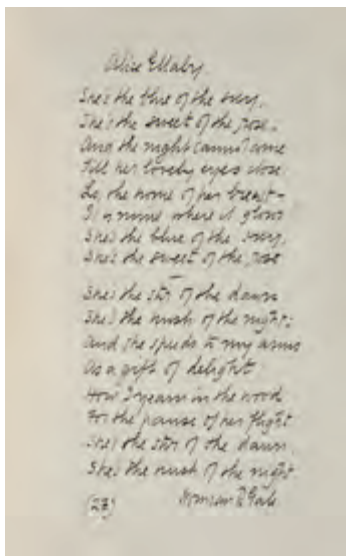 Alice Ellaby.
She's the blue of the sky,
She's the sweet of the rose.
And the night cannot come
Till her lovely eyes close.
the home of her breast—
is mine where it glows
She's the blue of the sky,
She's the sweet of the rose
She's the star of the dawn
She's the hush of the night:
And she speeds to my arms
As a gift of delight
How I yearn in the wood
For the pause of her flight
She's the star of the dawn.
She's the hush of the night
(27) Norman R Gale